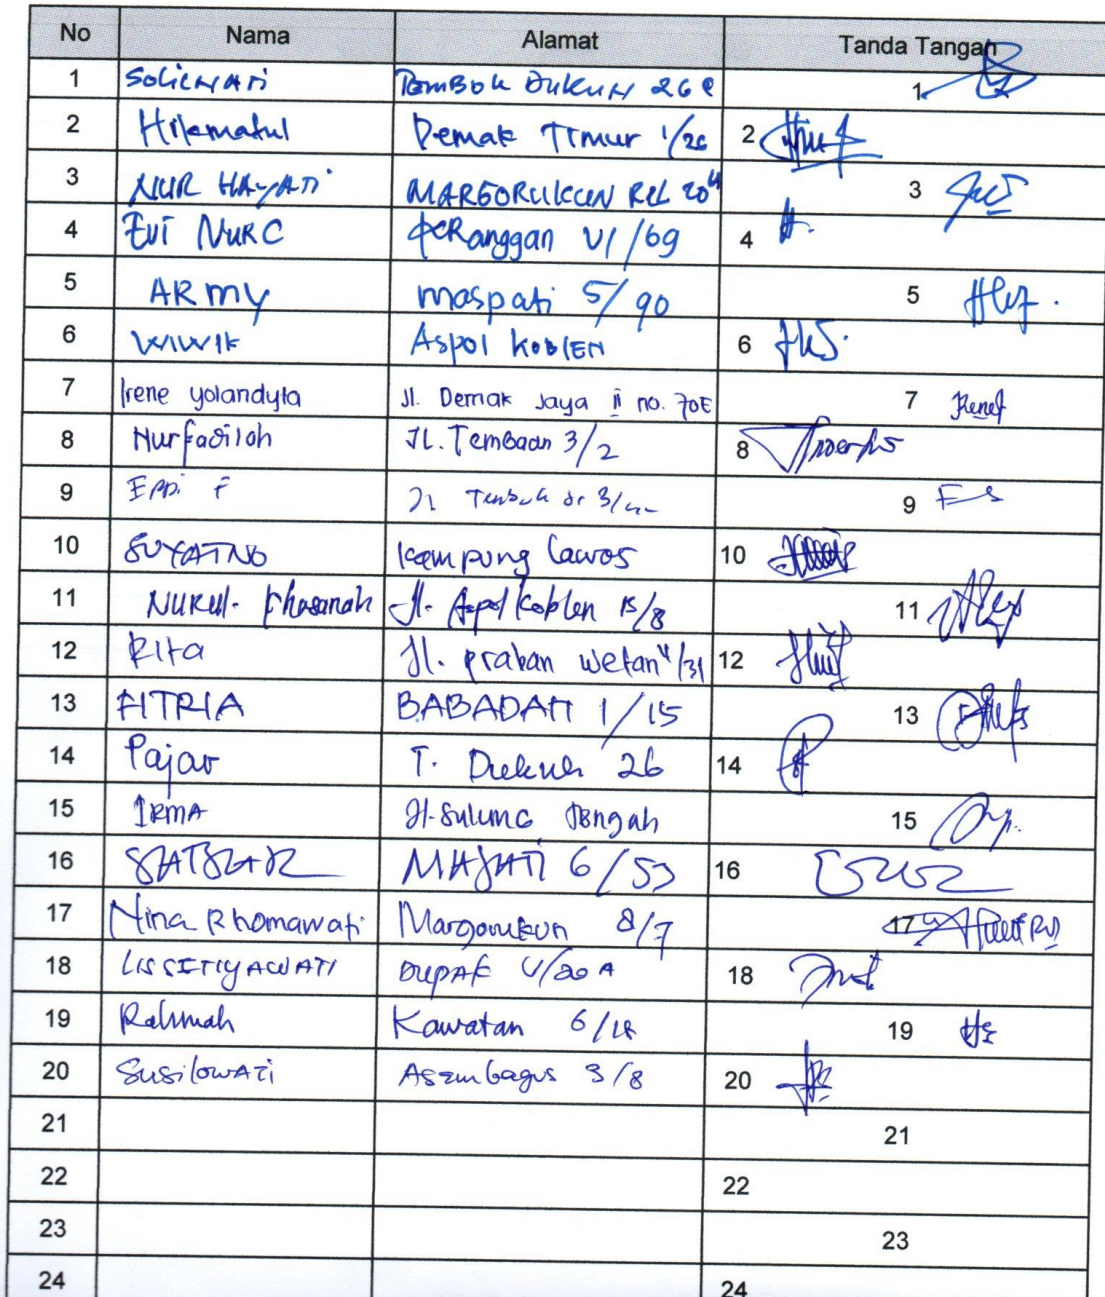 No Nama Alamat Tanda Tangan
1 Solicwati Tembok Dukuh 26 e 1
2 Hikmatul Demak Timur 1/26 2
3 NUR HAYATI MARGORUKUN 3
4 EVI NURC peRanggan VI/69 4
5 ARmy maspati 5/90 5
6 WIWIK Aspol KOBLEN 6
7 Irene yolandyta Jl. Demak Jaya II no. 70E 7
8 Nurfadiloh JL. Tembaan 3/2 8
9 F Jl 9
10 SUYATNO kampung Lawas 10
11 NURUL. khasanah Jl. Aspol koblen 15/8 11
12 Rita Jl. praban wetan 4/31 12
13 FITRIA BABADAN 1/15 13
14 Pajar T. Dukuh 26 14
15 IRMA Jl. Sulung Tengah 15
16 6/53 16
17 Nina Rhomawati Margorukun 8/7 17
18 LIS SETIYAWATI DUPAK V/20 A 18
19 Rahmah Kawatan 6/18 19
20 SusilowATi Asembagus 3/8 20
21 21
22 22
23 23
24 24